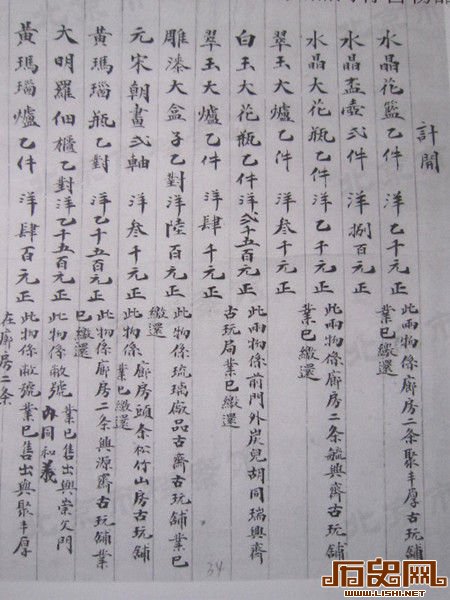 計開
水晶花籃乙件 洋乙千元正 此兩物係廊房二条聚丰厚古玩舖業已繳還
水晶盃壺弍件 洋捌百元正
水晶大花瓶乙件 洋乙千元正 此兩物係廊房二条毓興齋古玩舖業已繳還
翠玉大爐乙件 洋叁千元正
白玉大花瓶乙件 洋弍千五百元正 此兩物係前門外炭兒胡同瑞興齋古玩局業已繳還
翠玉大爐乙件 洋肆千元正
雕漆大盒子乙對 洋陸百元正 此物係琉璃廠品古齋古玩舖業已繳還
元宋朝畫弍軸 洋叁千元正 此物係廊房頭条松竹山房古玩舖業已繳還
黃瑪瑙瓶乙對 洋乙千五百元正 此物係廊房二条興源齋古玩舖業已繳還
大明羅佃櫃乙對 洋乙千五百元正 此物係敝號業已售出與崇文門內同和義
黃瑪瑙爐乙件 洋肆百元正 此物係敝號業已售出與聚丰厚在廊房二条
34
历史网
WWW.LISHI.NET